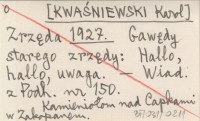 [KWAŚNIEWSKI Karol]
Zrzęda 1927. Gawędy
starego zrzędy: Hallo,
hallo, uwaga. — Wiad.
z Podh. nr 150.
Kamieniołom nad Capkami
w Zakopanem.